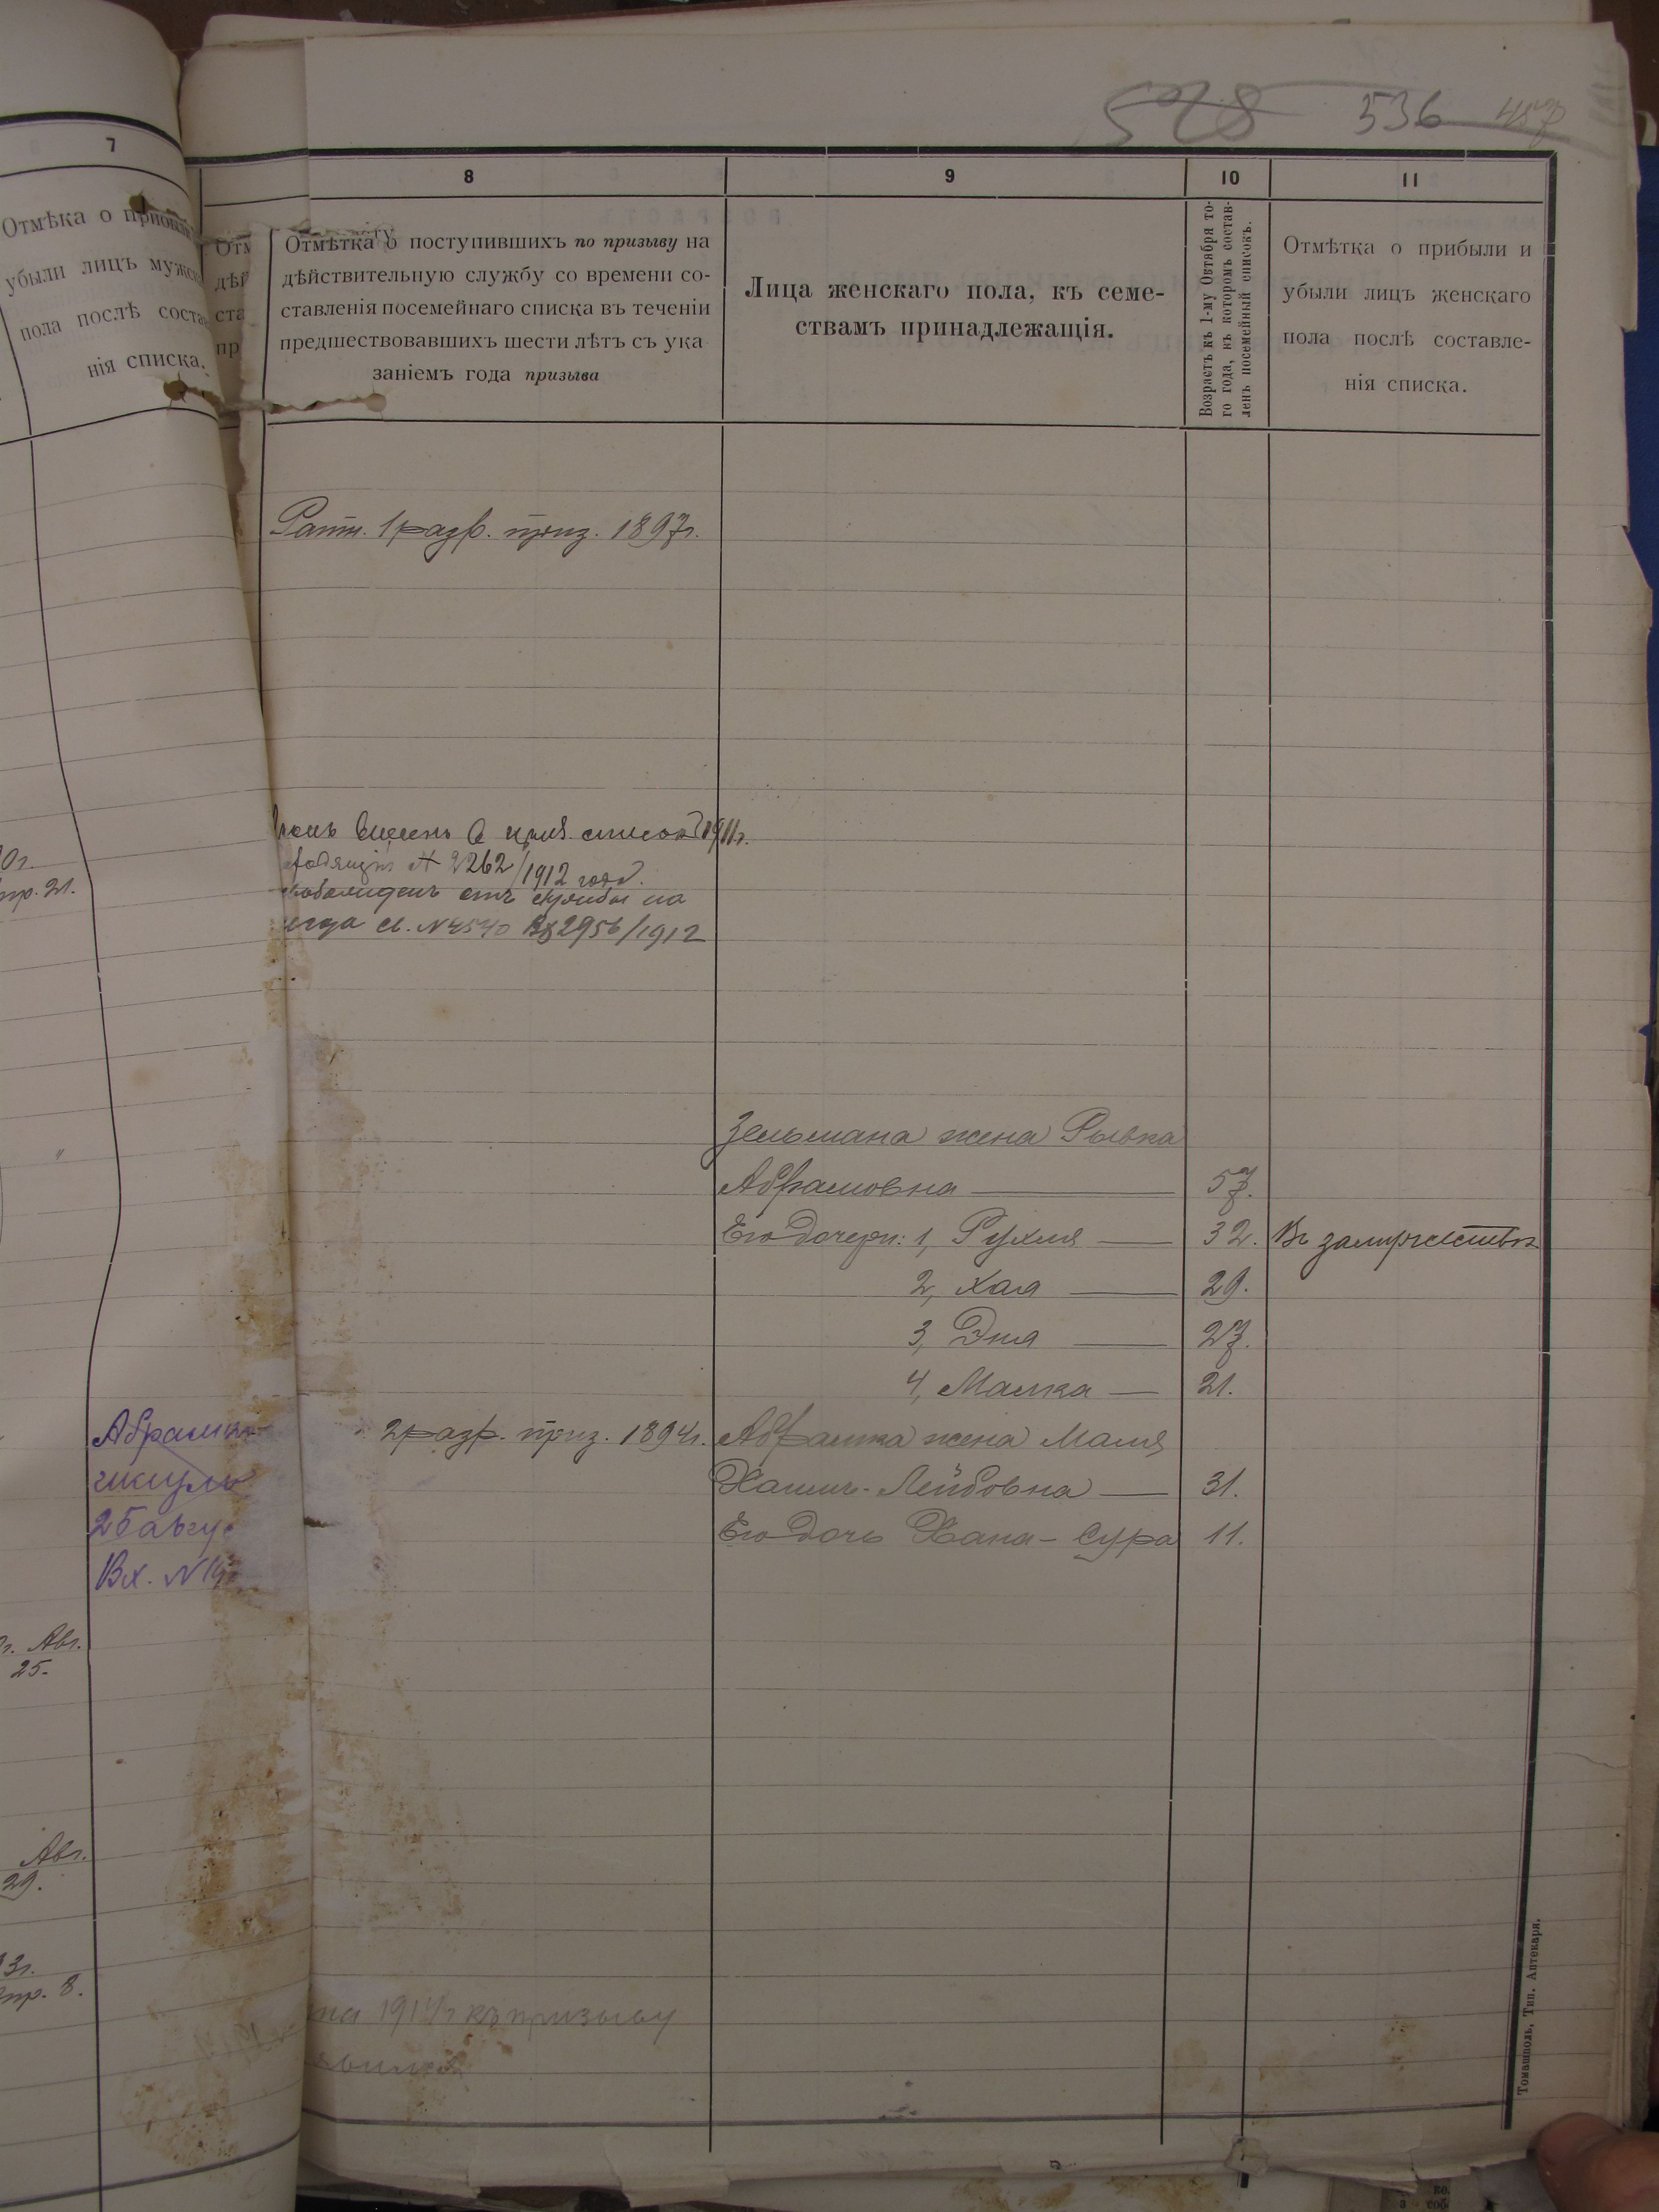 528 536 457
7
Отмѣка о прибыли
убыли лицъ мужск
пола послѣ соста
нія списка.
8
9
10
11
Отм
дѣй
ста
пр
Отмѣтка о поступившихъ по призыву на
дѣйствительную службу со времени со-
ставленія посемейнаго списка въ теченіи
предшествовавшихъ шести лѣтъ съ ука
заніемъ года призыва
Лица женскаго пола, къ семе-
ствамъ принадлежащія.
Возрастъ къ 1-му Октября то-
го года, къ которомъ состав-
ленъ посемейный списокъ.
Отмѣтка о прибыли и
убыли лицъ женскаго
пола послѣ составле-
нія списка.
Ратн. 1 разр. приз. 1897г.
0г.
пр. 21.
списокъ 1911г.
N 2262/1912 года.
отъ службы на
года св. N 4540 Вх 2956/1912
Зельмана жена Рывка
Абрамовна 57.
Его дочери: 1, Рухля 32. Въ замужествѣ
2, Хая 29.
3, Эня 27.
4, Малка 21.
2 разр. приз. 1894г.
Абрамка жена Маля
Хаимъ-Лейбовна 31.
Его дочь Хана-Сура 11.
Абрамко
25 авгус
Вх. N
г. Авг.
25.
Авг.
29.
3г.
пр. 8.
на 1914г къ призыву
явился
Томашполь, Тип. Аптекаря.